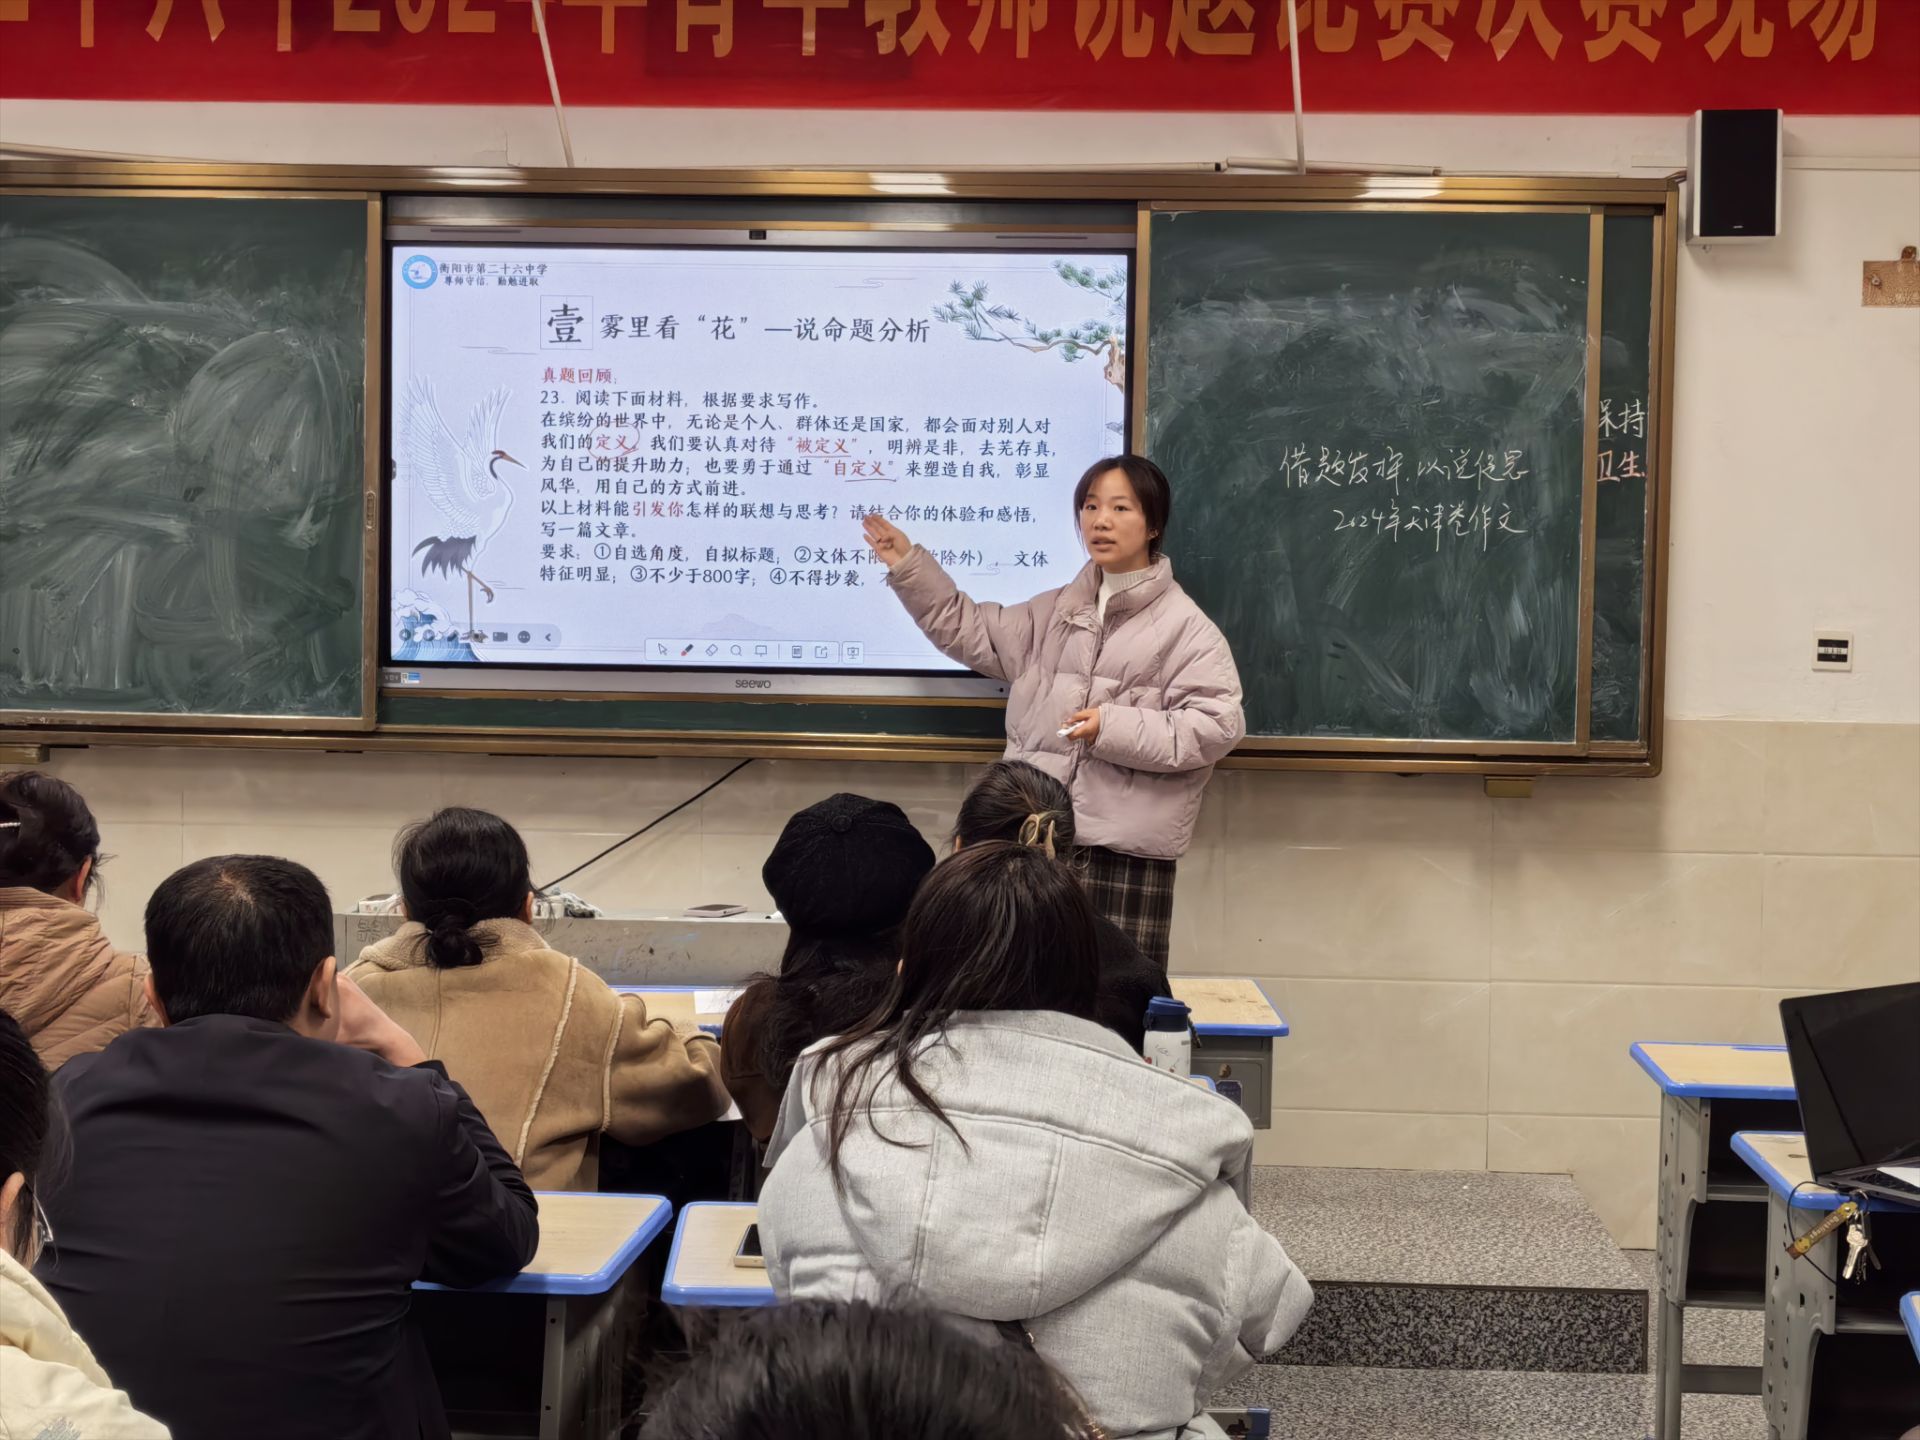 十六中2024年青年教师说题比赛决赛现场
衡阳市第二十六中学
尊师守信，勤勉进取
壹 雾里看“花”—说命题分析
真题回顾：
23. 阅读下面材料，根据要求写作。
在缤纷的世界中，无论是个人、群体还是国家，都会面对别人对
我们的定义。我们要认真对待“被定义”，明辨是非，去芜存真，
为自己的提升助力；也要勇于通过“自定义”来塑造自我，彰显
风华，用自己的方式前进。
以上材料能引发你怎样的联想与思考？请结合你的体验和感悟，
写一篇文章。
要求：①自选角度，自拟标题；②文体不限 除外），文体
特征明显；③不少于800字；④不得抄袭，
seewo
借题发挥，以说促思
2024年天津卷作文
保持
卫生